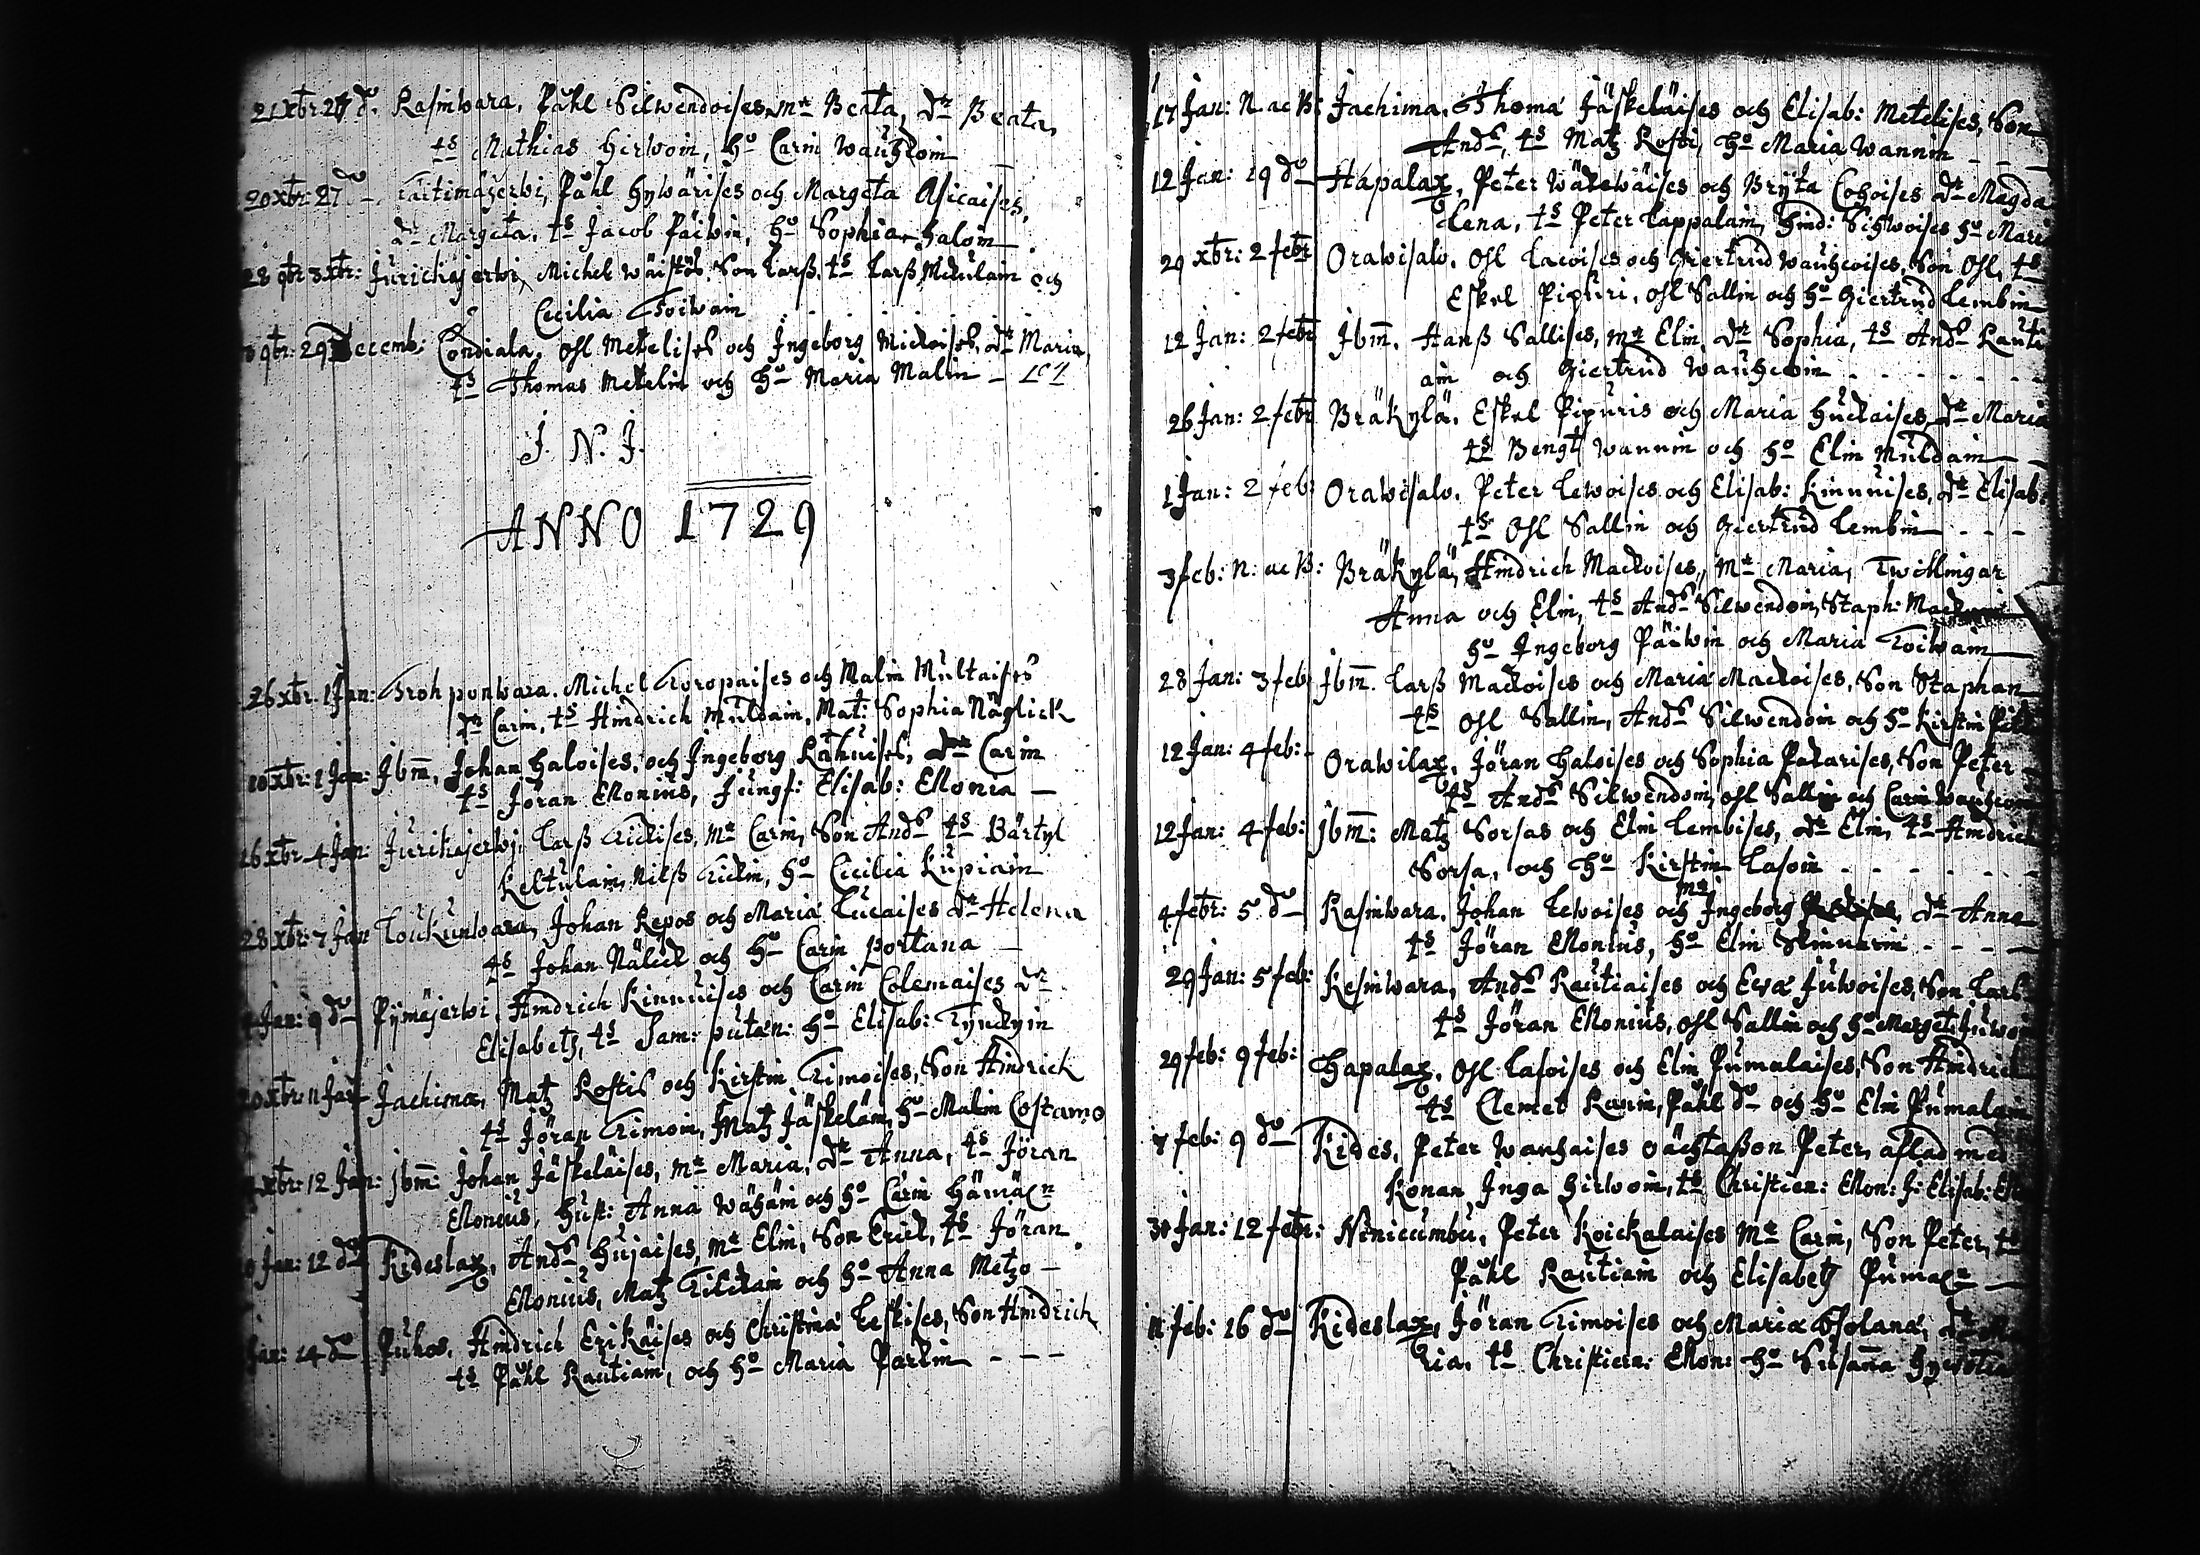 21 xbr 24 do. Kasinwara, Påhl Silwendoises, mr Beata, Dr Beata,
ts Mathias Hirwoin, ho Carin Wauhkoin
20 xbr 27 do Taitimäjerwi, Påhl Hywärises och Margeta Asicaises,
dr Margeta, ts Jacob Päiwin, ho Sophia Haloin
28 9br 3 xbr: Jurickajerwi, Michel Wäistös Son Larß, ts Larß Mikulain och
Cicilia Toiwain
9br: 29 Decemb: Condiala, Ohl Metelises och Ingeborg Mickoises, dr Maria,
ts Thomas Metelin och ho Maria Malin
J. N. J.
ANNO 1729
26 xbr. 1 Jan: Trohponwara. Michel Toropaises och Malin Multaises
dr Carin, ts Hindrich Muldain, Mat: Sophia Näglick
10 xbr: 1 Jan: Jbm, Johan Haloises, och Ingeborg Rähuises, dr Carin
ts Jöran Monius, Jungf: Elisab: Monia
16 xbr 4 Jan: Jurikajerwi, Larß Tickises, mr Carin, Son Ands ts Bärtyl
Keltulain, Nilß Tickin, ho Cicilia Kupiain
28 xbr: 7 Jan Loukunwara, Johan Repos och Maria Lucaises dr Helena
ts Johan Näkick och ho Carin Portana
Jan: 9 do Pymäjerwi. Hindrich Kinnuises och Carin Colemaises Dr
Elisabeth, ts Sam: putæn: ho Elisab: Tynckyin
20 xbr 11 Jan Jachima, Matz Kostis och Kirstin Timoises, Son Hindrick
ts Jöran Timoin, Matz Jäskeläin, ho Malin Costamo
xbr: 12 Jan: jbm: Johan Jäskeläises, mr Maria, Dr Anna, ts Jöran
Monius, hust: Anna Wähäin och ho Carin Hämäln
Jan: 12 do Kideslax, Ands Hujaises, mr Elin, Son Erick, ts Jöran
Monius, Matz Tickain och ho Anna Metzo
Jan: 14 do Puhos, Hindrich Erikäises och Christina Leskises, Son Hindrich
ts Påhl Rautiain, och ho Maria Parkin
17 Jan: N ac B: Jachima. Thoma Jäskeläises och Elisab: Metelises, Son
Ands, ts Matz Kosti, ho Maria Wannin
12 Jan: 19 do Hapalax, Peter Wäkewäises och Bryta Cohoises dr Magda
lena, ts Peter Lappalain, Hind: Sihwoises ho Mari
29 xbr: 2 febr Orawisalo. Ohl Lacoises och Giertrud Wauhcoises, Son Ohl, ts
Eskel Pipuri, Ohl Sallin och ho Giertrud Lembin
12 Jan: 2 febr Jbm. Hanß Sallises, mr Elin, Dr Sophia, ts Ands Rauti
ain och Giertrud Wauhcoin
26 Jan: 2 febr Bräkylä. Eskel Pipuris och Maria Huckaises, dr Maria
ts Bengt Wannin och ho Elin Muldain
1 Jan: 2 feb: Orawisalo. Peter Lewoises och Elisab: Kinnuises, dr Elisab:
ts Ohl Sallin och Giertrud Lembin
3 feb: N: ac B: Bräkylä, Hindrich Mackoises, mr Maria, Twillingar
Anna och Elin, ts Ands Silwendoin, Staph:
ho Ingeborg Päiwin och Maria Toiwain
28 Jan: 3 feb: Jbm. Larß Mackoises och Maria Mackoises, Son Staphan
ts Ohl Sallin, Ands Silwendoin och ho Kirstin
12 Jan: 4 feb: Orawilax, Jöran Haloises och Sophia Pakarises, Son Peter
ts Ands Silwendoin, Ohl Sallin och Carin Wauhcoin
12 Jan: 4 feb: jbm: Matz Sorsas och Elin Lembises, dr Elin, ts Hindrich
Sorsa, och ho Kirstin Lasoin
4 febr: 5 do Kasinwara. Johan Lewoises och mr Ingeborg, dr Anna
ts Jöran Monius, ho Elin Skinnarin
29 Jan: 5 feb: Kesinwara, Ands Rautiaises och Ewa Juwoises, Son Larß
ts Jöran Monius, Ohl Sallin och ho Marget: Juwoi
29 feb: 9 feb: Hapalax, Ohl Lasoises och Elin Pumalaises, Son Hindrich
ts Clemet Rauin, Påhl do och ho Elin Pumalain
7 feb: 9 do Kides, Peter Wauhaises oächta Son Peter, aflad med
Konan Inga Hirwoin, ts Christier: Mon: J: Elisab:
30 Jan: 12 febr: Ninicumbu, Peter Koickalaises mr Carin, Son Peter, ts
Påhl Rautiain och Elisabeth Pumaln
11 feb: 16 do Kideslax, Jöran Timoises och Maria Asolana, dr Ma
ria, ts Christiern: Mon: ho Susanna